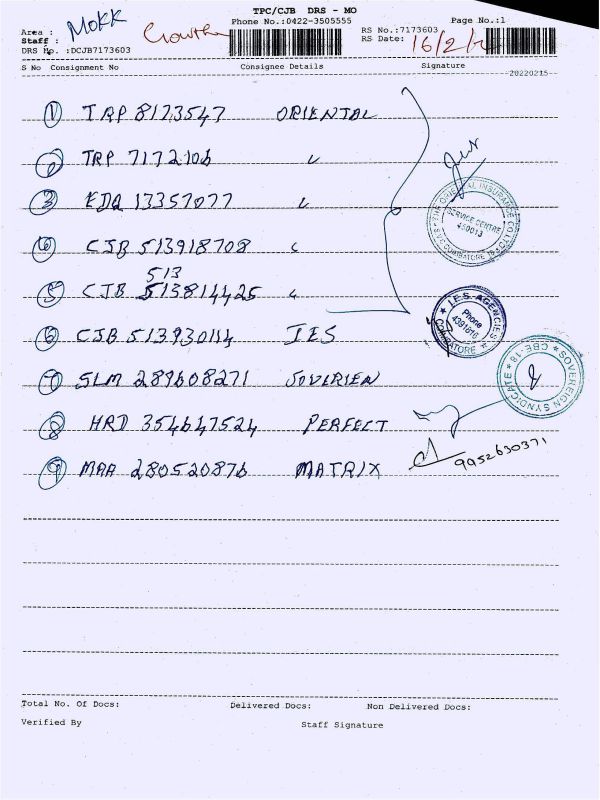 TPC/CJB DRS - MO
Area : MOKK
Phone No.:0422-3505555
Page No.:1
Staff :
RS No.:7173603
DRS No. :DCJB7173603
RS Date: 16/2/
S No Consignment No Consignee Details Signature
20220215
① TRP 8173547 ORIENTAL
TRP 7172106 "
③ EDQ 13357077 "
CJB 513918708 "
513
⑤ CJB 513814425 "
⑥ CJB 513930114 IES
⑦ SLM 289608271 SOVERIEN
⑧ HRD 354647524 PERFECT
⑨ MAA 280520876 MATRIX
9952630371
THE ORIENTAL INSURANCE CO.LTD.
SERVICE CENTRE
450013
COIMBATORE
I.E.S. AGENCIES
Phone
4391616
SOVEREIGN SYNDICATE ★ CBE-18 ★
Total No. Of Docs: Delivered Docs: Non Delivered Docs:
Verified By Staff Signature